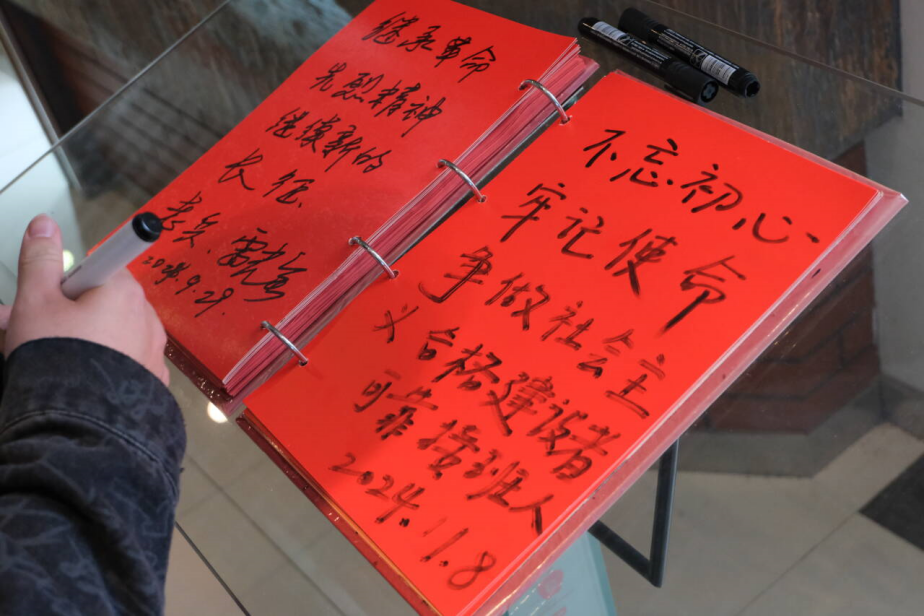 继承革命
先烈精神
送 新的
长征.
老兵
2018.9.29.
不忘.初心、
牢记使命
争做社会主
义合格建设者
可靠接班人
2024.1.8